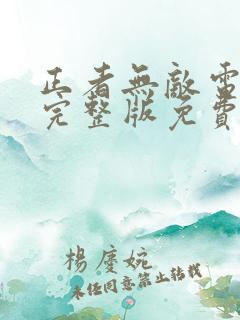 正者無敵電
完整版免費
楊慶婉
未经同意禁止转载